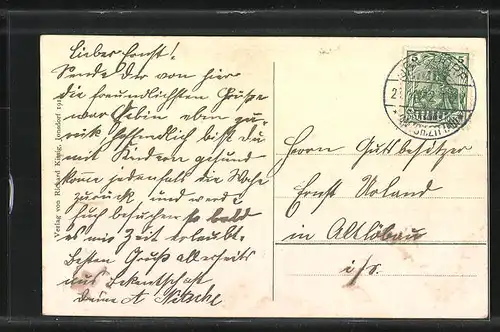 Lieber Ernst!
Sende Dir von hier
die freundlichsten Grüße
war bin eben zu-
rück, hoffendlich bist Du
mit Kindern gesund
kome jedenfals die Woche
zurück, und werde
Euch besuchen so bald
es mir Zeit erlaubt.
Besten Gruß allerseits
aus Bekentschaft
Deine A Nitsche
Verlag von Richard König, 191
5 5
Herrn Gutsbesitzer
Ernst Noland
in Altlöbau
i/s.